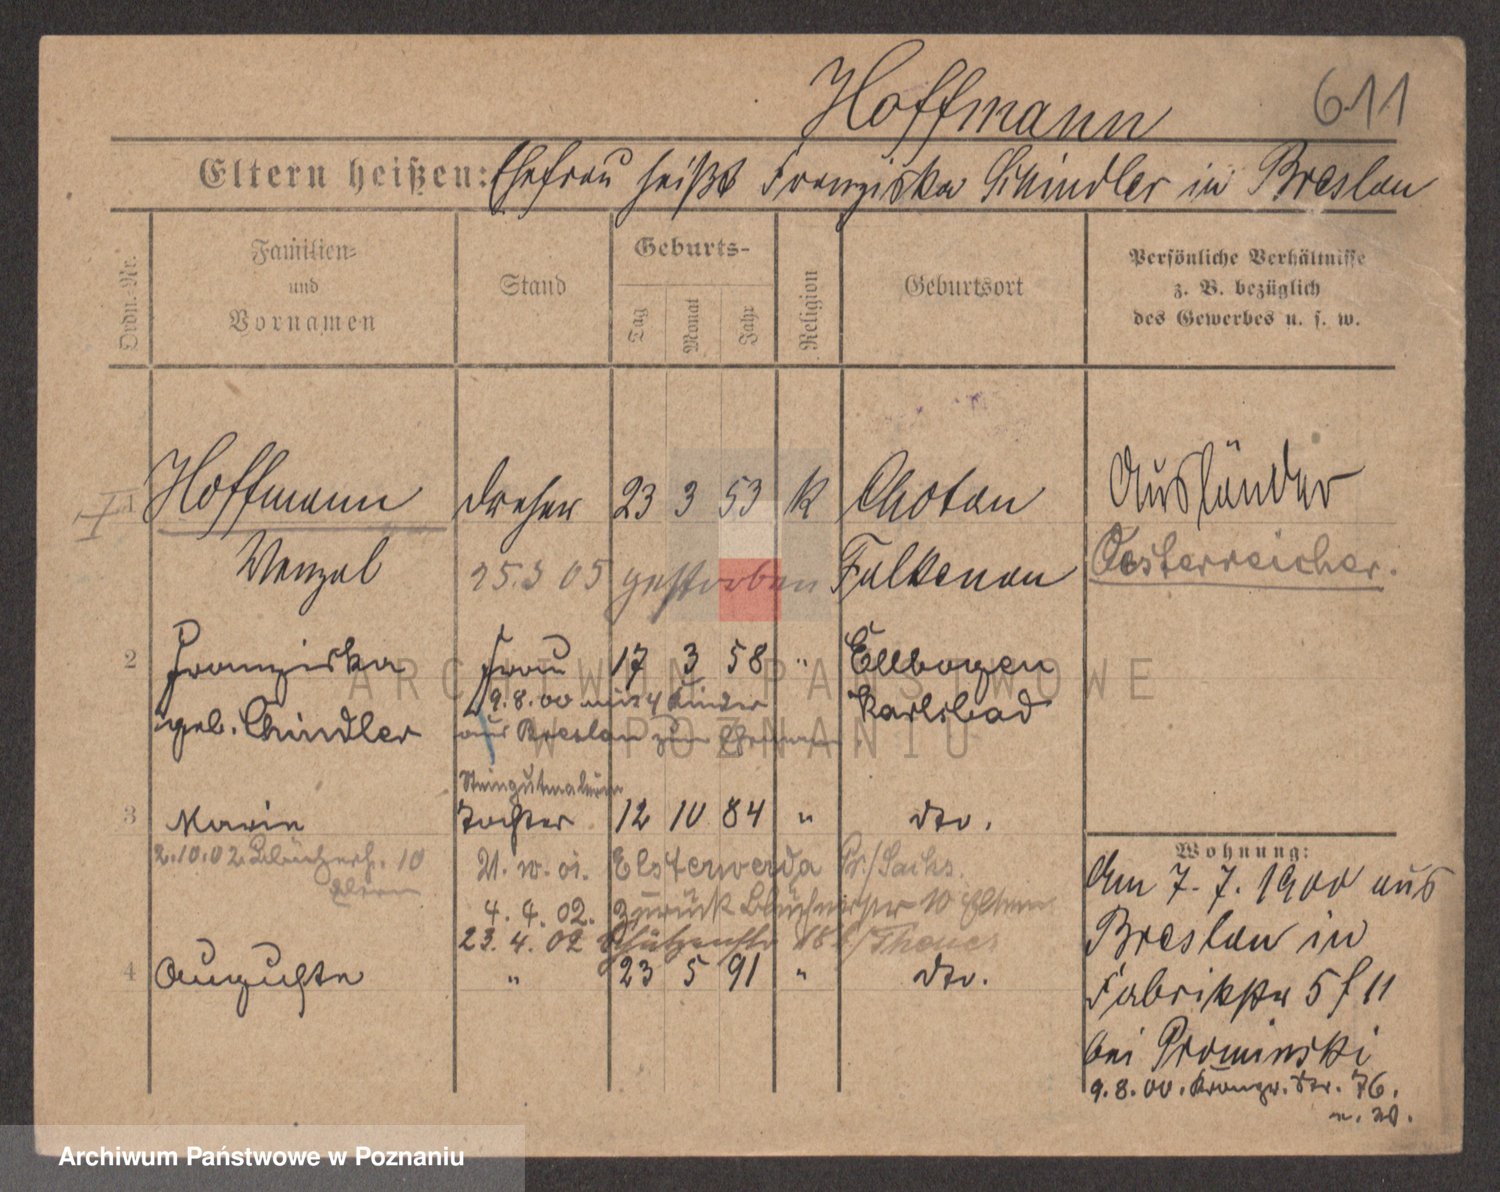 Hoffmann 611
Eltern heißen: Ehefrau heißt Franziska Schindler in Breslau
Ordn.-Nr.
Familien-
und
Vornamen
Stand
Geburts-
Tag
Monat
Jahr
Religion
Geburtsort
Persönliche Verhältnisse
z. B. bezüglich
des Gewerbes u. s. w.
1 Hoffmann Dreher 23 3 53 K Chotau Ausländer
Wenzel 25.3 05 gestorben Falkenau Oesterreicher.
2 Franziska Frau 17 3 58 " Ellbogen
geb. Schindler 9.8.00 mit 4 Kinder Karlsbad
aus Breslau zum Ehemann
Steingutmalerin
3 Marie Tochter 12 10 84 " dto.
2.10.02 10 Eltern
21. 10. 01. Elsterwerda Pr./Sachs.
4. 4. 02. zurück 10 Eltern
23. 4. 02 Schützenstr 18
4 Auguste " 23 5 91 " dto.
Wohnung:
Am 7. 7. 1900 aus
Breslau in
Fabrikstr 5 f 11
bei Prominski
9. 8. 00. Kronpr. Str. 76.
ARCHIWUM PAŃSTWOWE
W POZNANIU
Archiwum Państwowe w Poznaniu